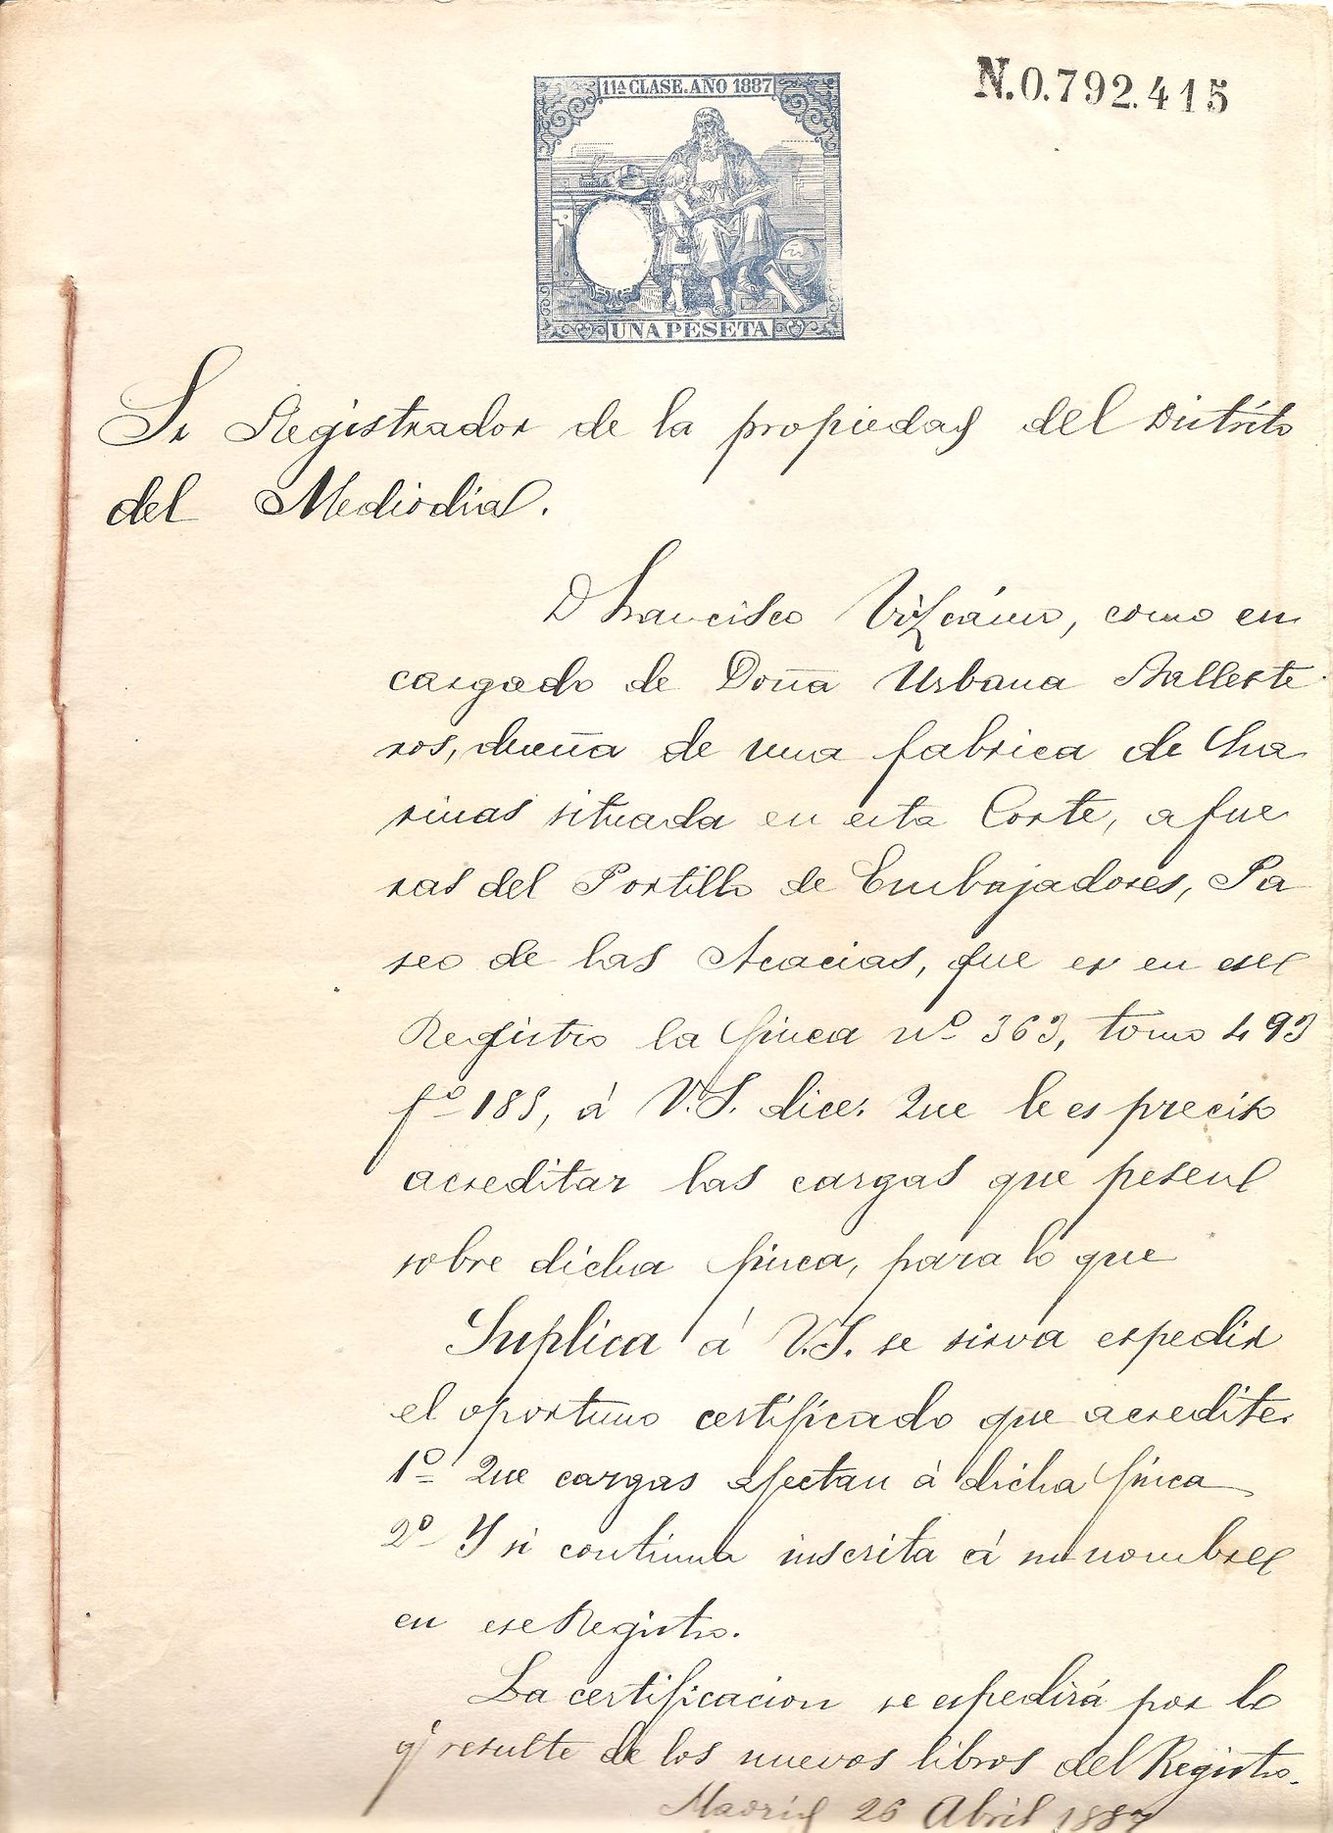 11ª CLASE. AÑO 1887
N.0.792.415
UNA PESETA
Sr Registrador de la propiedad del Distrito
del Mediodia.
D Francisco Vizcaino, como en
cargado de Doña Urbana Balleste
ros, dueña de una fabrica de ha
rinas situada en esta Corte, afue
ras del Portillo de Embajadores, Pa
seo de las Acacias, que es en ese
Registro la finca nº 363, tomo 493
fº 185, á V.S. dice: Que le es preciso
acreditar las cargas que pesen
sobre dicha finca, para lo que
Suplica á V.S. se sirva espedir
el oportuno certificado que acredite:
1º Que cargas afectan á dicha finca
2º Y si continua inscrita á mi nombre
en ese Registro.
La certificacion se espedirá por lo
q' resulte de los nuevos libros del Registro.
Madrid 26 Abril 1887